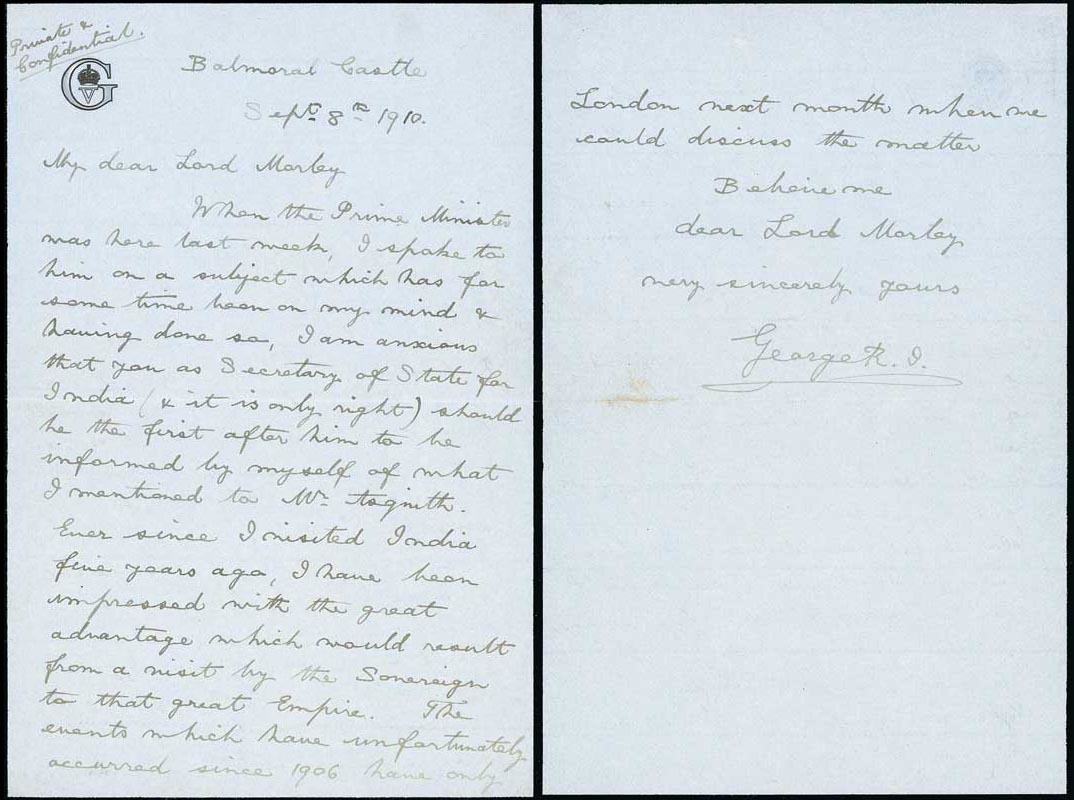 Private &
Confidential.
GV
Balmoral Castle
Sept. 8th 1910.
My dear Lord Morley
When the Prime Minister
was here last week, I spoke to
him on a subject which has for
some time been on my mind &
having done so, I am anxious
that you as Secretary of State for
India (& it is only right) should
be the first after him to be
informed by myself of what
I mentioned to Mr. Asquith.
Ever since I visited India
five years ago, I have been
impressed with the great
advantage which would result
from a visit by the Sovereign
to that great Empire. The
events which have unfortunately
occurred since 1906 have only
London next month when we
could discuss the matter
Believe me
dear Lord Morley
very sincerely yours
George R. I.